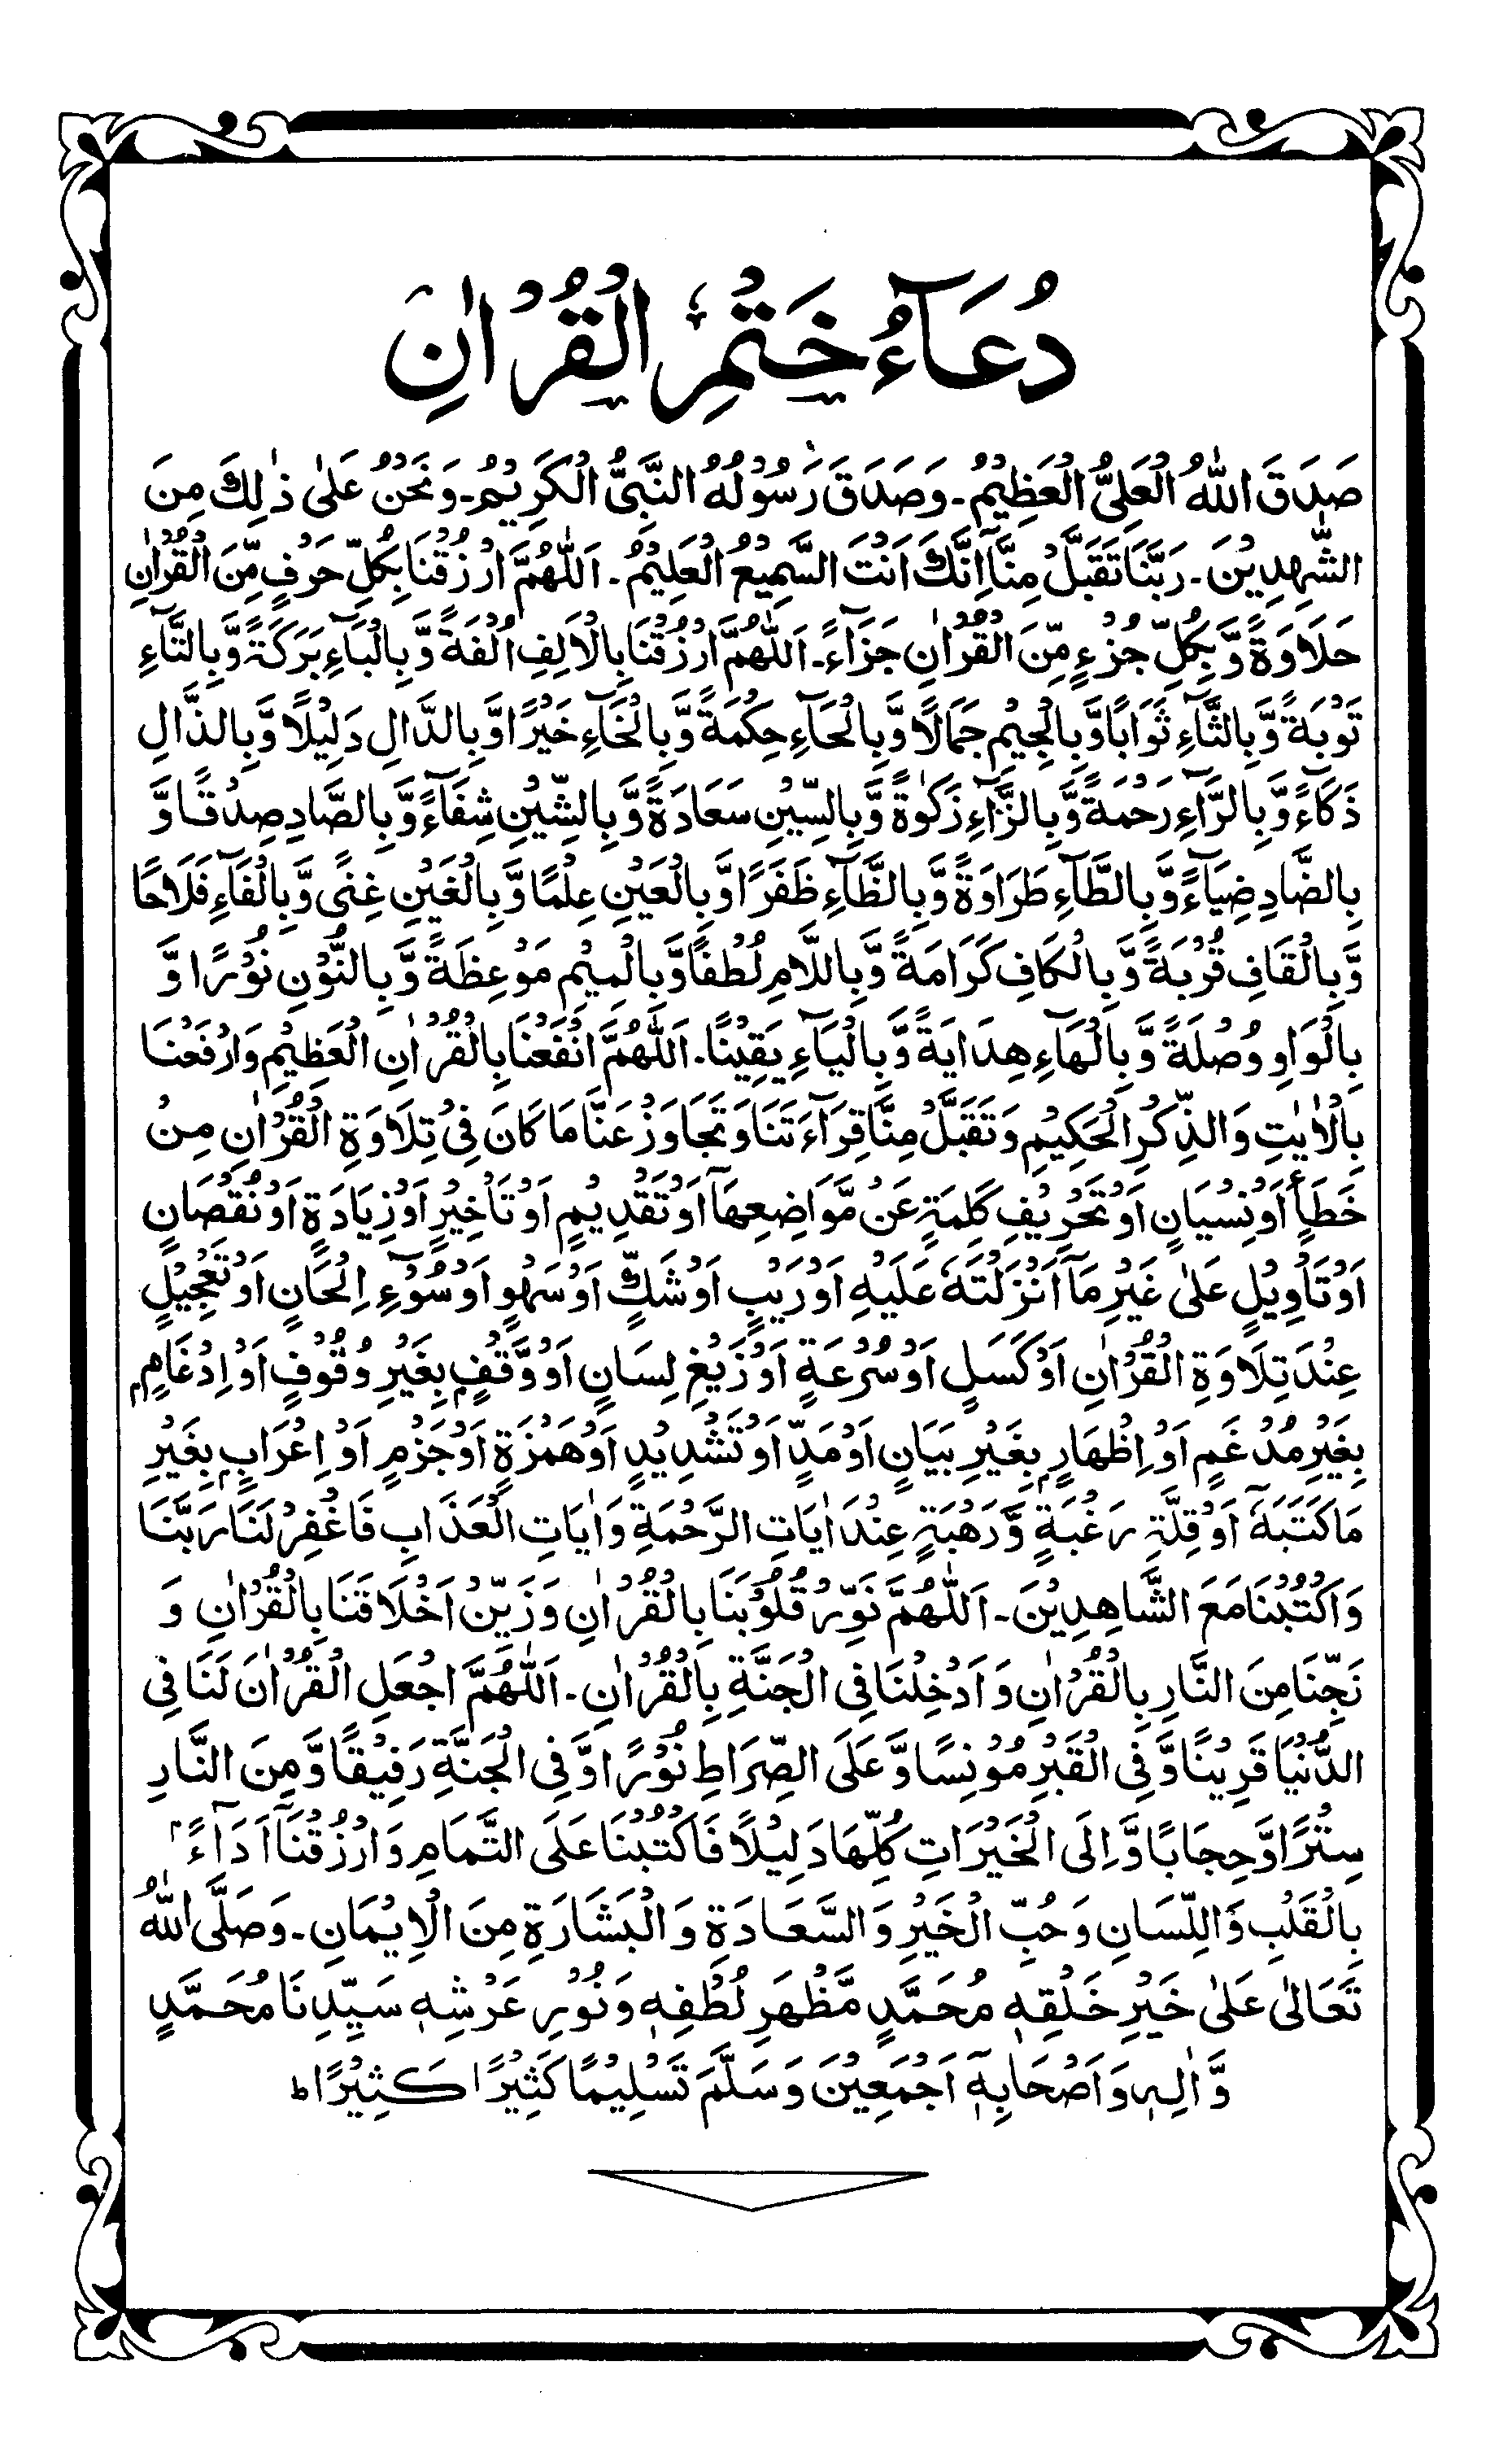 دُعَآءُ خَتْمِ الْقُرْاٰنِ
صَدَقَ اللّٰهُ الْعَلِیُّ الْعَظِیْمُ۔ وَصَدَقَ رَسُوْلُهُ النَّبِیُّ الْكَرِیْمُ۔ وَنَحْنُ عَلٰی ذٰلِكَ مِنَ
الشّٰهِدِیْنَ۔ رَبَّنَا تَقَبَّلْ مِنَّآ اِنَّكَ اَنْتَ السَّمِیْعُ الْعَلِیْمُ۔ اَللّٰهُمَّ ارْزُقْنَا بِكُلِّ حَرْفٍ مِّنَ الْقُرْاٰنِ
حَلَاوَةً وَّ بِكُلِّ جُزْءٍ مِّنَ الْقُرْاٰنِ جَزَآءً۔ اَللّٰهُمَّ ارْزُقْنَا بِالْاَلِفِ اُلْفَةً وَّ بِالْبَآءِ بَرَكَةً وَّ بِالتَّآءِ
تَوْبَةً وَّ بِالثَّآءِ ثَوَابًا وَّ بِالْجِیْمِ جَمَالًا وَّ بِالْحَآءِ حِكْمَةً وَّ بِالْخَآءِ خَیْرًا وَّ بِالدَّالِ دَلِیْلًا وَّ بِالذَّالِ
ذَكَآءً وَّ بِالرَّآءِ رَحْمَةً وَّ بِالزَّآءِ زَكٰوةً وَّ بِالسِّیْنِ سَعَادَةً وَّ بِالشِّیْنِ شِفَآءً وَّ بِالصَّادِ صِدْقًا وَّ
بِالضَّادِ ضِیَآءً وَّ بِالطَّآءِ طَرَاوَةً وَّ بِالظَّآءِ ظَفَرًا وَّ بِالْعَیْنِ عِلْمًا وَّ بِالْغَیْنِ غِنًی وَّ بِالْفَآءِ فَلَاحًا
وَّ بِالْقَافِ قُرْبَةً وَّ بِالْكَافِ كَرَامَةً وَّ بِاللَّامِ لُطْفًا وَّ بِالْمِیْمِ مَوْعِظَةً وَّ بِالنُّوْنِ نُوْرًا وَّ
بِالْوَاوِ وُصْلَةً وَّ بِالْهَآءِ هِدَایَةً وَّ بِالْیَآءِ یَقِیْنًا۔ اَللّٰهُمَّ انْفَعْنَا بِالْقُرْاٰنِ الْعَظِیْمِ وَارْفَعْنَا
بِالْاٰیٰتِ وَالذِّكْرِ الْحَكِیْمِ وَتَقَبَّلْ مِنَّا قِرَآءَتَنَا وَتَجَاوَزْ عَنَّا مَا كَانَ فِیْ تِلَاوَةِ الْقُرْاٰنِ مِنْ
خَطَأٍ اَوْ نِسْیَانٍ اَوْ تَحْرِیْفِ كَلِمَةٍ عَنْ مَّوَاضِعِهَآ اَوْ تَقْدِیْمٍ اَوْ تَاْخِیْرٍ اَوْ زِیَادَةٍ اَوْ نُقْصَانٍ
اَوْ تَاْوِیْلٍ عَلٰی غَیْرِ مَآ اَنْزَلْتَهٗ عَلَیْهِ اَوْ رَیْبٍ اَوْ شَكٍّ اَوْ سَهْوٍ اَوْ سُوْٓءِ اِلْحَانٍ اَوْ تَعْجِیْلٍ
عِنْدَ تِلَاوَةِ الْقُرْاٰنِ اَوْ كَسَلٍ اَوْ سُرْعَةٍ اَوْ زَیْغِ لِسَانٍ اَوْ وَّقْفٍۭ بِغَیْرِ وُقُوْفٍ اَوْ اِدْغَامٍۭ
بِغَیْرِ مُدْغَمٍ اَوْ اِظْهَارٍۭ بِغَیْرِ بَیَانٍ اَوْ مَدٍّ اَوْ تَشْدِیْدٍ اَوْ هَمْزَةٍ اَوْ جَزْمٍ اَوْ اِعْرَابٍۭ بِغَیْرِ
مَا كَتَبَهٗٓ اَوْ قِلَّةِ رَغْبَةٍ وَّ رَهْبَةٍ عِنْدَ اٰیَاتِ الرَّحْمَةِ وَ اٰیَاتِ الْعَذَابِ فَاغْفِرْ لَنَا رَبَّنَا
وَاكْتُبْنَا مَعَ الشَّاهِدِیْنَ۔ اَللّٰهُمَّ نَوِّرْ قُلُوْبَنَا بِالْقُرْاٰنِ وَ زَیِّنْ اَخْلَاقَنَا بِالْقُرْاٰنِ وَ
نَجِّنَا مِنَ النَّارِ بِالْقُرْاٰنِ وَ اَدْخِلْنَا فِی الْجَنَّةِ بِالْقُرْاٰنِ۔ اَللّٰهُمَّ اجْعَلِ الْقُرْاٰنَ لَنَا فِی
الدُّنْیَا قَرِیْنًا وَّ فِی الْقَبْرِ مُوْنِسًا وَّ عَلَی الصِّرَاطِ نُوْرًا وَّ فِی الْجَنَّةِ رَفِیْقًا وَّ مِنَ النَّارِ
سِتْرًا وَّ حِجَابًا وَّ اِلَی الْخَیْرَاتِ كُلِّهَا دَلِیْلًا فَاكْتُبْنَا عَلَی التَّمَامِ وَ ارْزُقْنَآ اَدَآءًۢ
بِالْقَلْبِ وَاللِّسَانِ وَ حُبِّ الْخَیْرِ وَ السَّعَادَةِ وَ الْبَشَارَةِ مِنَ الْاِیْمَانِ۔ وَصَلَّی اللّٰهُ
تَعَالٰی عَلٰی خَیْرِ خَلْقِهٖ مُحَمَّدٍ مَّظْهَرِ لُطْفِهٖ وَ نُوْرِ عَرْشِهٖ سَیِّدِنَا مُحَمَّدٍ
وَّ اٰلِهٖ وَ اَصْحَابِهٖٓ اَجْمَعِیْنَ وَ سَلَّمَ تَسْلِیْمًا كَثِیْرًا كَثِیْرًا ط